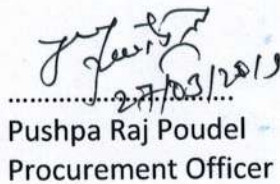 27/03/2019
....................
Pushpa Raj Poudel
Procurement Officer